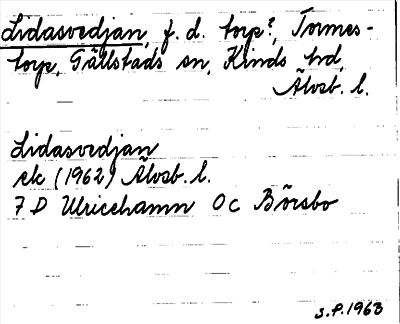 Lidasvedjan, f. d. torp?, Tormes-
torp, Gällstads sn, Kinds hd,
Älvsb. l.
Lidasvedjan
ek (1962) Älvsb. l.
7 D Ulricehamn 0 c Börsbo
S.P. 1963